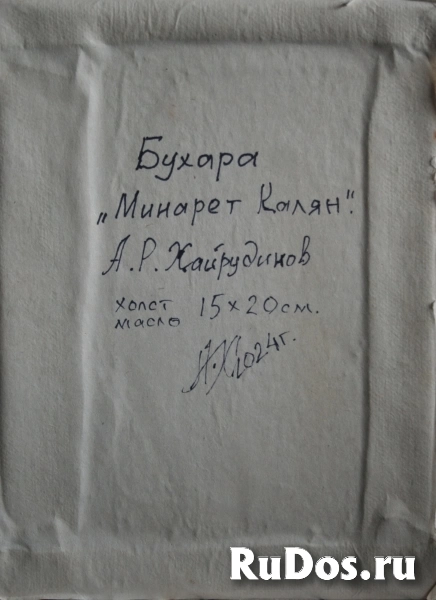 Бухара
„Минарет Калян".
А.Р. Хайрудинов
холст
масло 15х20см.
А.Х. 2024г.
RuDos.ru